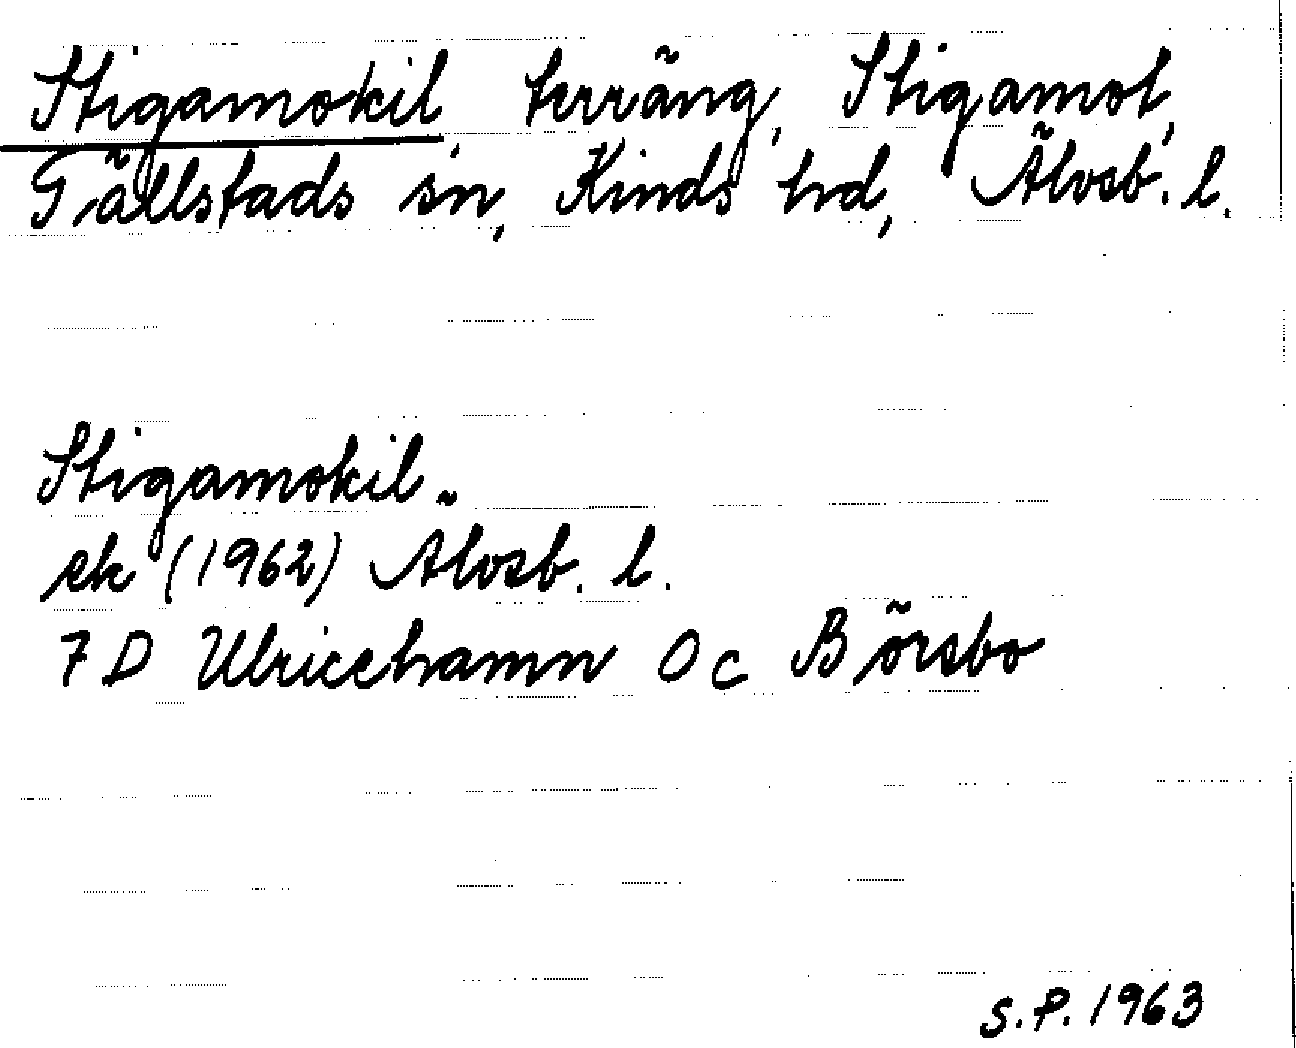 Stigamokil, terräng, Stigamot,
Gällstads sn, Kinds hd, Älvsb. l.
Stigamokil.
ek (1962) Älvsb. l.
7 D Ulricehamn 0 c Börsbo
S.P. 1963